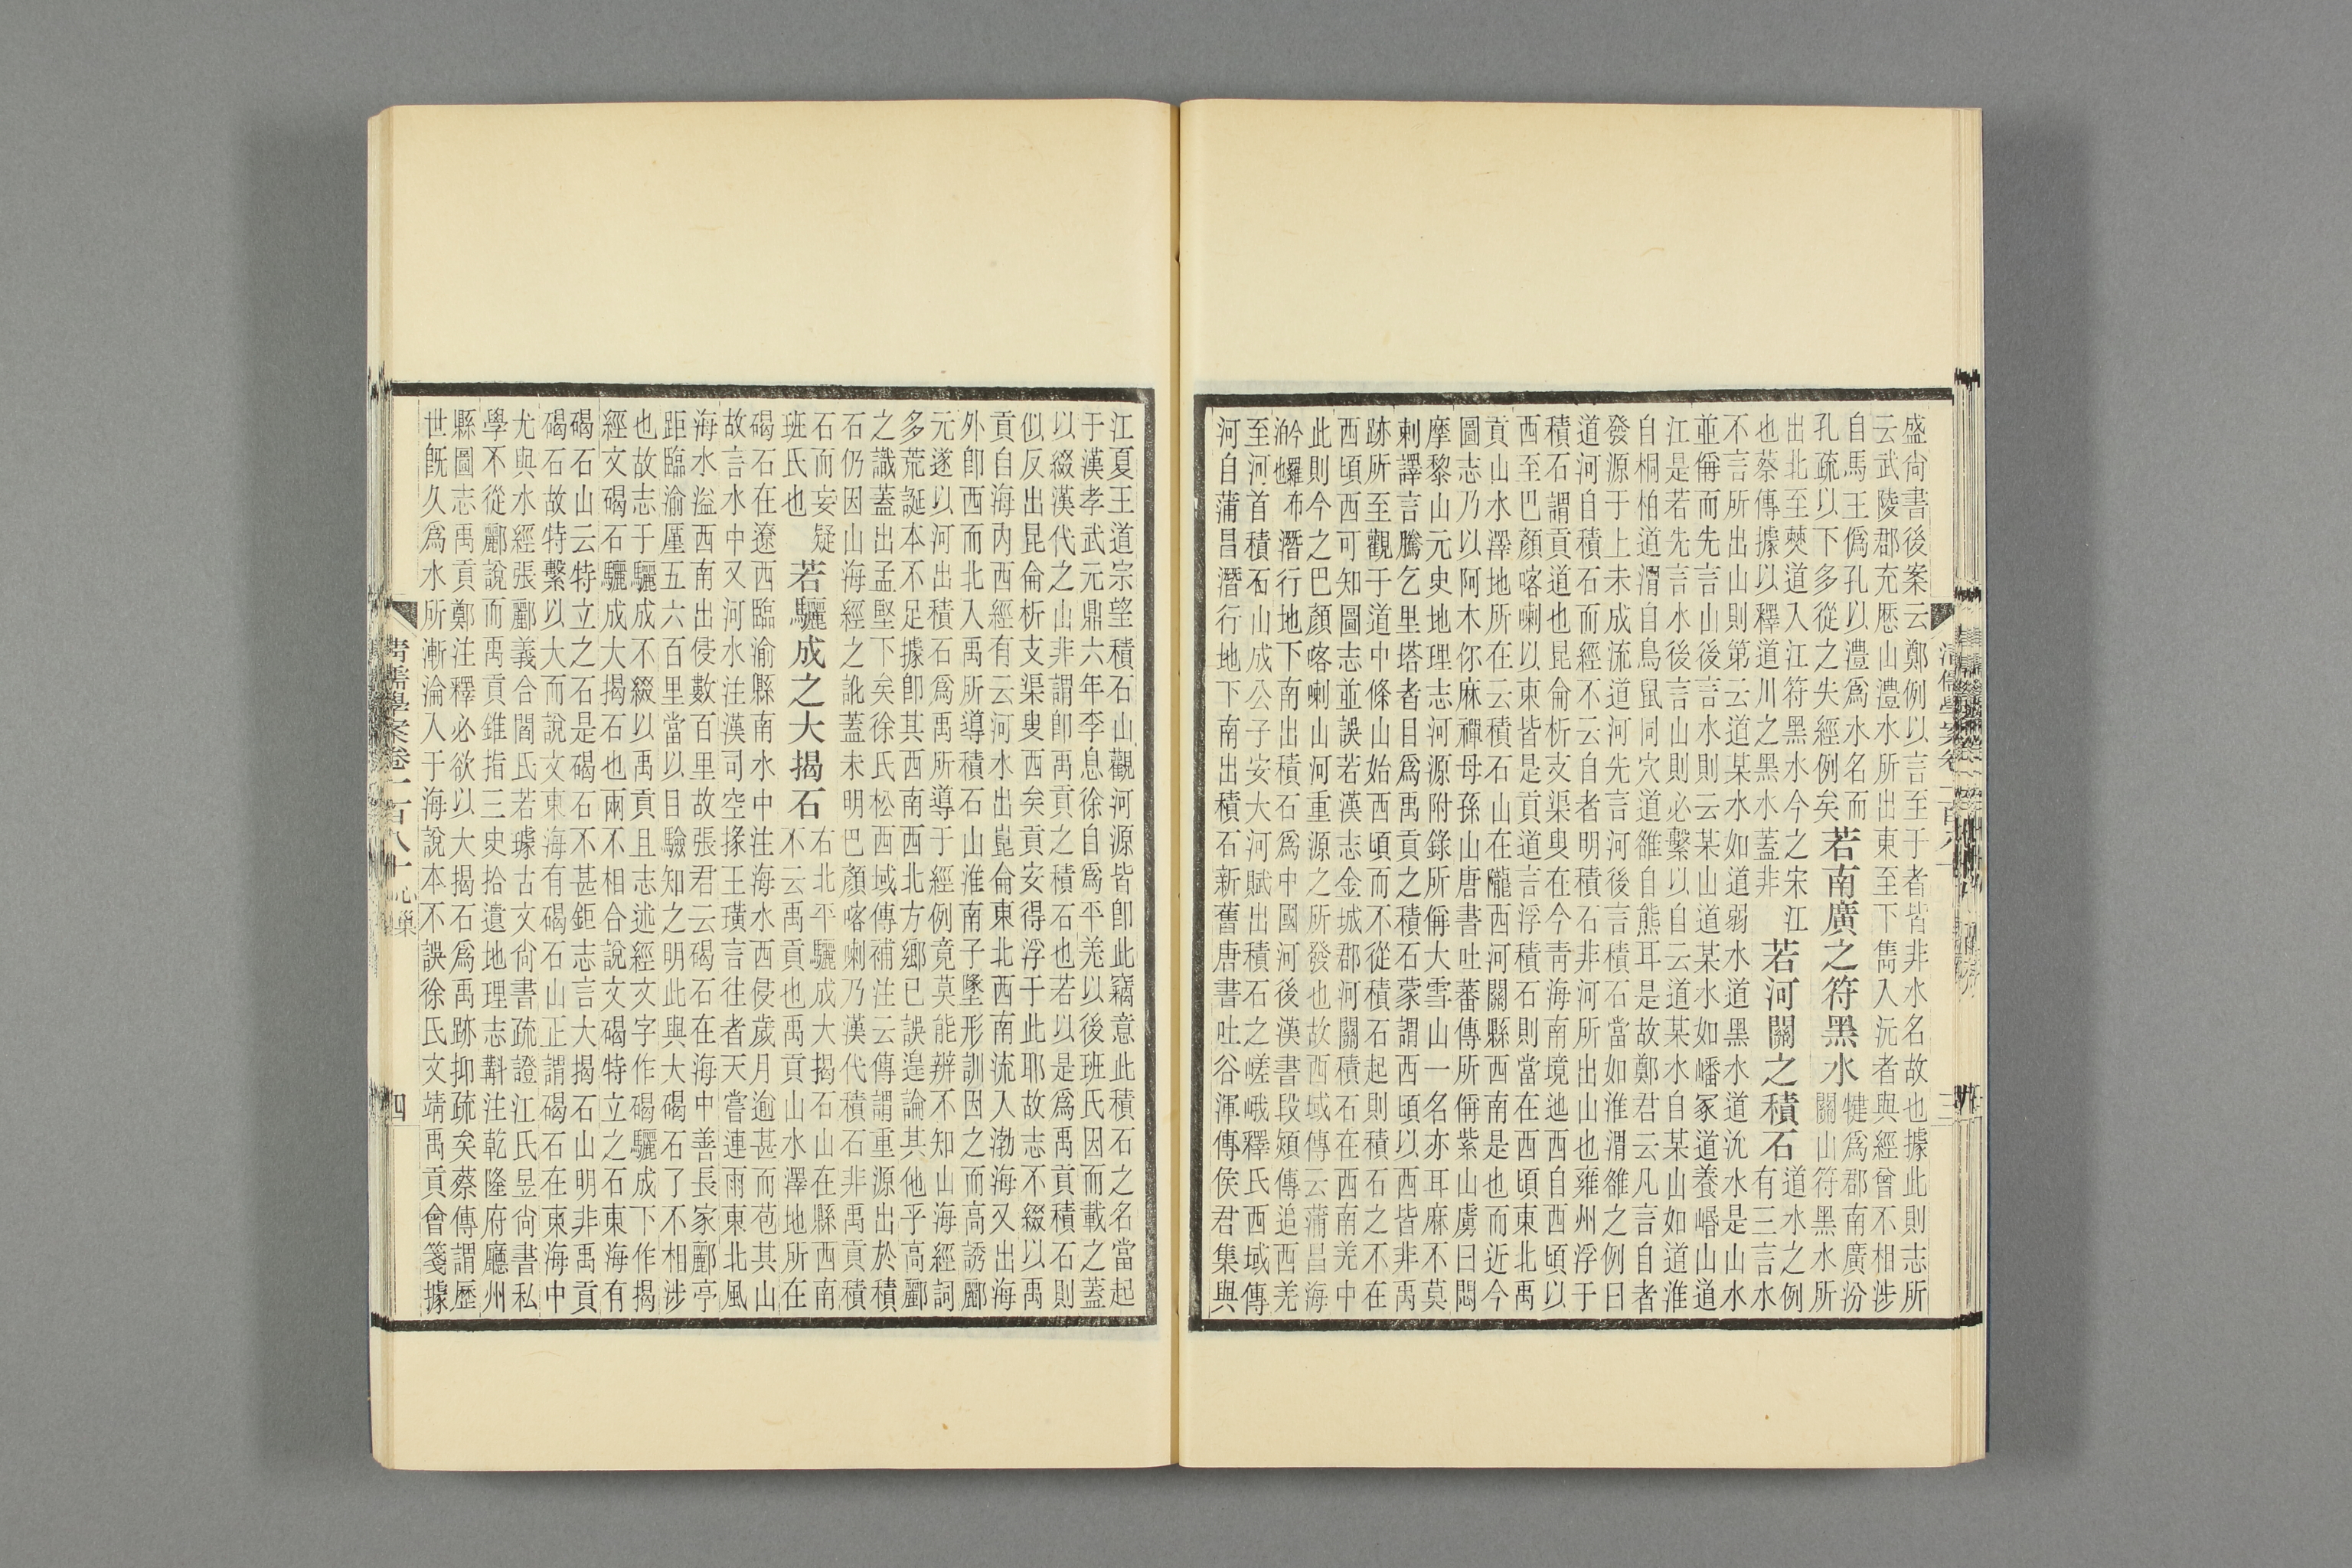 盛尙書後案云鄭例以言至于者皆非水名故也據此則志所
云武陵郡充歷山澧水所出東至下雋入沅者與經曾不相涉
自馬王僞孔以澧爲水名而
孔疏以下多從之失經例矣
若南廣之符黑水
犍爲郡南廣汾
關山符黑水所
出北至僰道入江符黑水今之宋江
也蔡傳據以釋道川之黑水蓋非
若河關之積石
道水之例
有三言水
不言所出山則第云道某水如道弱水道黑水道沇水是山水
並偁而先言山後言水則云某山道某水如嶓冢道養㟭山道
江是若先言水後言山則必繫以自云道某水自某山如道淮
自桐柏道渭自鳥鼠同穴道雒自熊耳是故鄭君云凡言自者
發源于上未成流道河先言河後言積石當如淮渭雒之例曰
道河自積石而經不云自者明積石非河所出山也雍州浮于
積石謂貢道也昆侖析支渠叟在今靑海南境迆西自西頃以
西至巴顏喀喇以東皆是貢道言浮積石則當在西頃東北禹
貢山水澤地所在云積石山在隴西河關縣西南是也而近今
圖志乃以阿木你麻禪母孫山唐書吐蕃傳所偁紫山虜曰悶
摩黎山元史地理志河源附錄所偁大雪山一名亦耳麻不莫
剌譯言騰乞里塔者目爲禹貢之積石蒙謂西頃以西皆非禹
跡所至觀于道中條山始西頃而不從積石起則積石之不在
西頃西可知圖志並誤若漢志金城郡河關積石在西南羌中
此則今之巴顏喀喇山河重源之所發也故西域傳云蒲昌海
布潛行地下南出積石爲中國河後漢書段熲傳追西羌
至河首積石山成公子安大河賦出積石之嵯峨釋氏西域傳
河自蒲昌潛行地下南出積石新舊唐書吐谷渾傳侯君集與
江夏王道宗望積石山觀河源皆卽此竊意此積石之名當起
于漢孝武元鼎六年李息徐自爲平羌以後班氏因而載之蓋
以綴漢代之山非謂卽禹貢之積石也若以是爲禹貢積石則
似反出昆侖析支渠叟西矣貢安得浮于此耶故志不綴以禹
貢自海內西經有云河水出崑侖東北西南流入渤海又出海
外卽西而北入禹所導積石山淮南子墬形訓因之而高誘酈
元遂以河出積石爲禹所導于經例竟莫能辨不知山海經詞
多荒誕本不足據卽其西南西北方鄉已誤遑論其他乎高酈
之識蓋出孟堅下矣徐氏松西域傳補注云傳謂重源出於積
石仍因山海經之訛蓋未明巴顏喀喇乃漢代積石非禹貢積
石而妄疑
班氏也
若驪成之大揭石
右北平驪成大揭石山在縣西南
不云禹貢也禹貢山水澤地所在
碣石在遼西臨渝縣南水中注海水西侵歲月逾甚而苞其山
故言水中又河水注漢司空掾王璜言往者天嘗連雨東北風
海水溢西南出侵數百里故張君云碣石在海中善長家酈亭
距臨渝厪五六百里當以目驗知之明此與大碣石了不相涉
也故志于驪成不綴以禹貢且志述經文字作碣驪成下作揭
經文碣石驪成大揭石也兩不相合說文碣特立之石東海有
碣石山云特立之石是碣石不甚鉅志言大揭石山明非禹貢
碣石故特繫以大而說文東海有碣石山正謂碣石在東海中
尤與水經張酈義合閻氏若璩古文尙書疏證江氏昱尙書私
學不從酈說而禹貢錐指三史拾遺地理志斠注乾隆府廳州
縣圖志禹貢鄭注釋必欲以大揭石爲禹跡抑疏矣蔡傳謂歷
世旣久爲水所漸淪入于海說本不誤徐氏文靖禹貢會箋據
淸儒學案卷一百八十 心巢
四